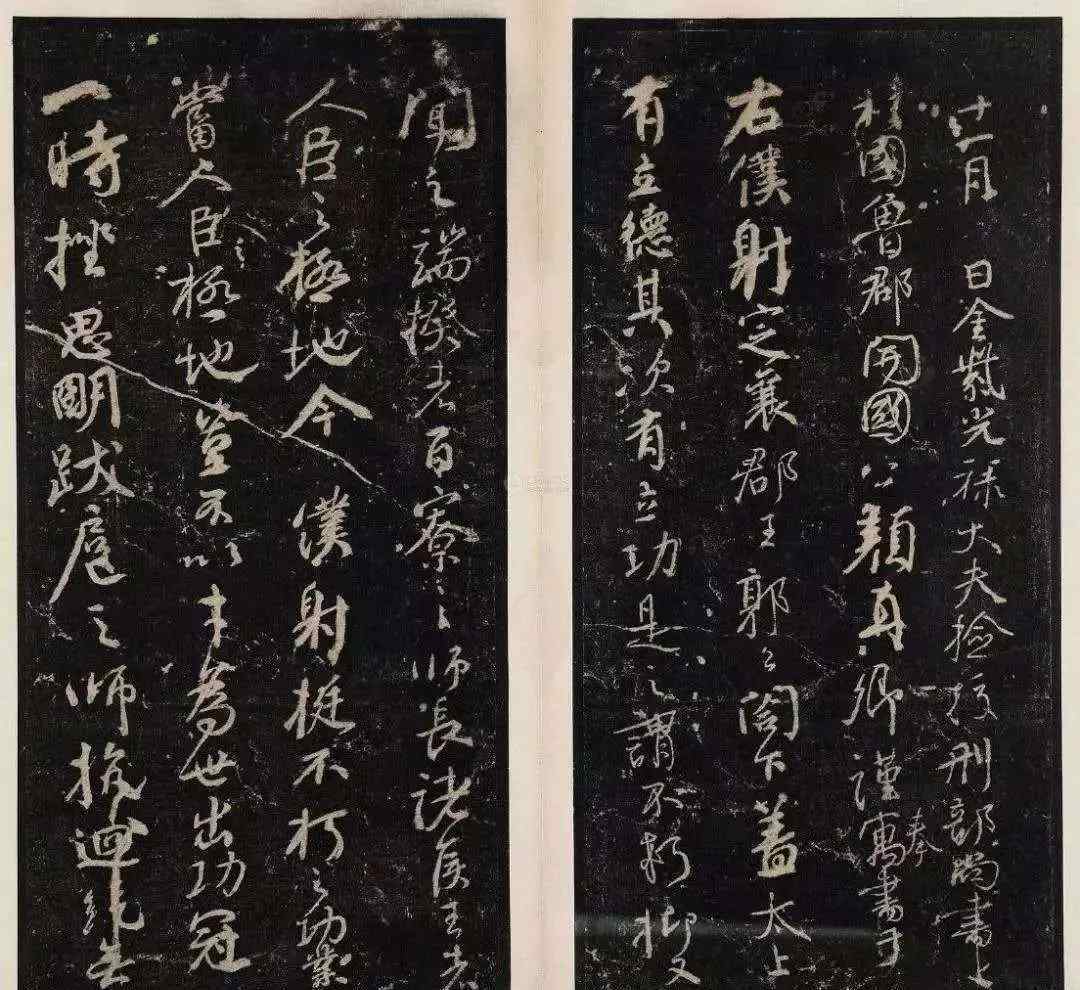 十一月 日金紫光祿大夫檢校刑部尚書上
柱國魯郡開國公顏真卿謹奉寓書于
右僕射定襄郡王郭公閤下蓋太上
有立德其次有立功是之謂不朽抑又
聞之端揆者百寮之師長諸侯王者
人臣之極地今僕射挺不朽之功業
當人臣之極地豈不以才為世出功冠
一時挫思明跋扈之師抗迴紇無